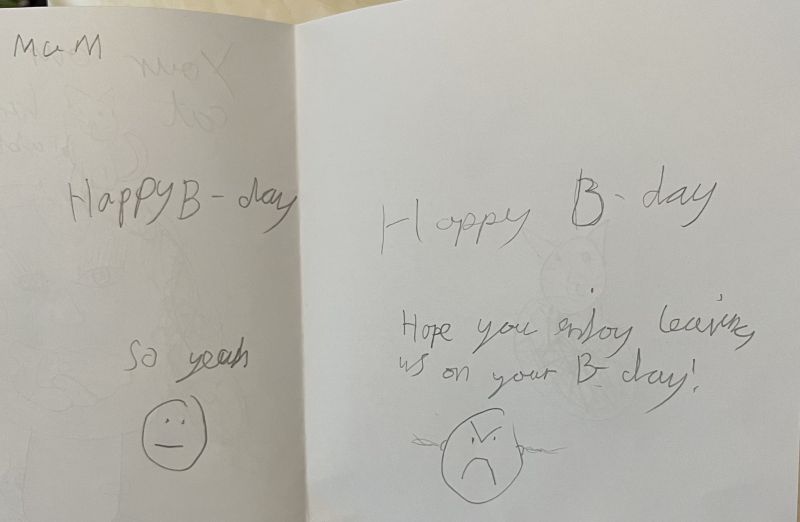 MuM
Happy B-day
so yeah
Happy B-day
Hope you enjoy leaving
us on your B-day!